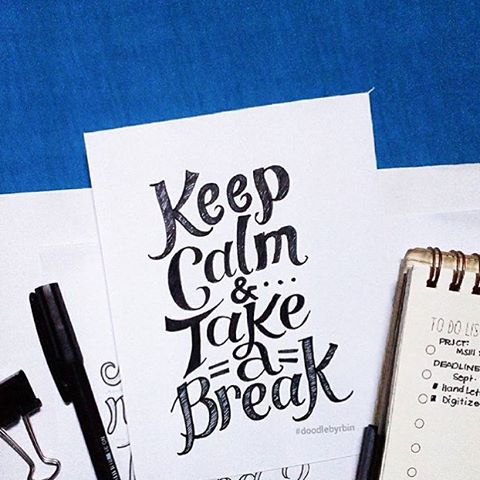 Keep
Calm
& ...
Take
=a=
Break
#doodlebyrbin
TO DO LIS
PRJCT:
MSIII
DEADLINE
Sept.
Hand Let
Digitize